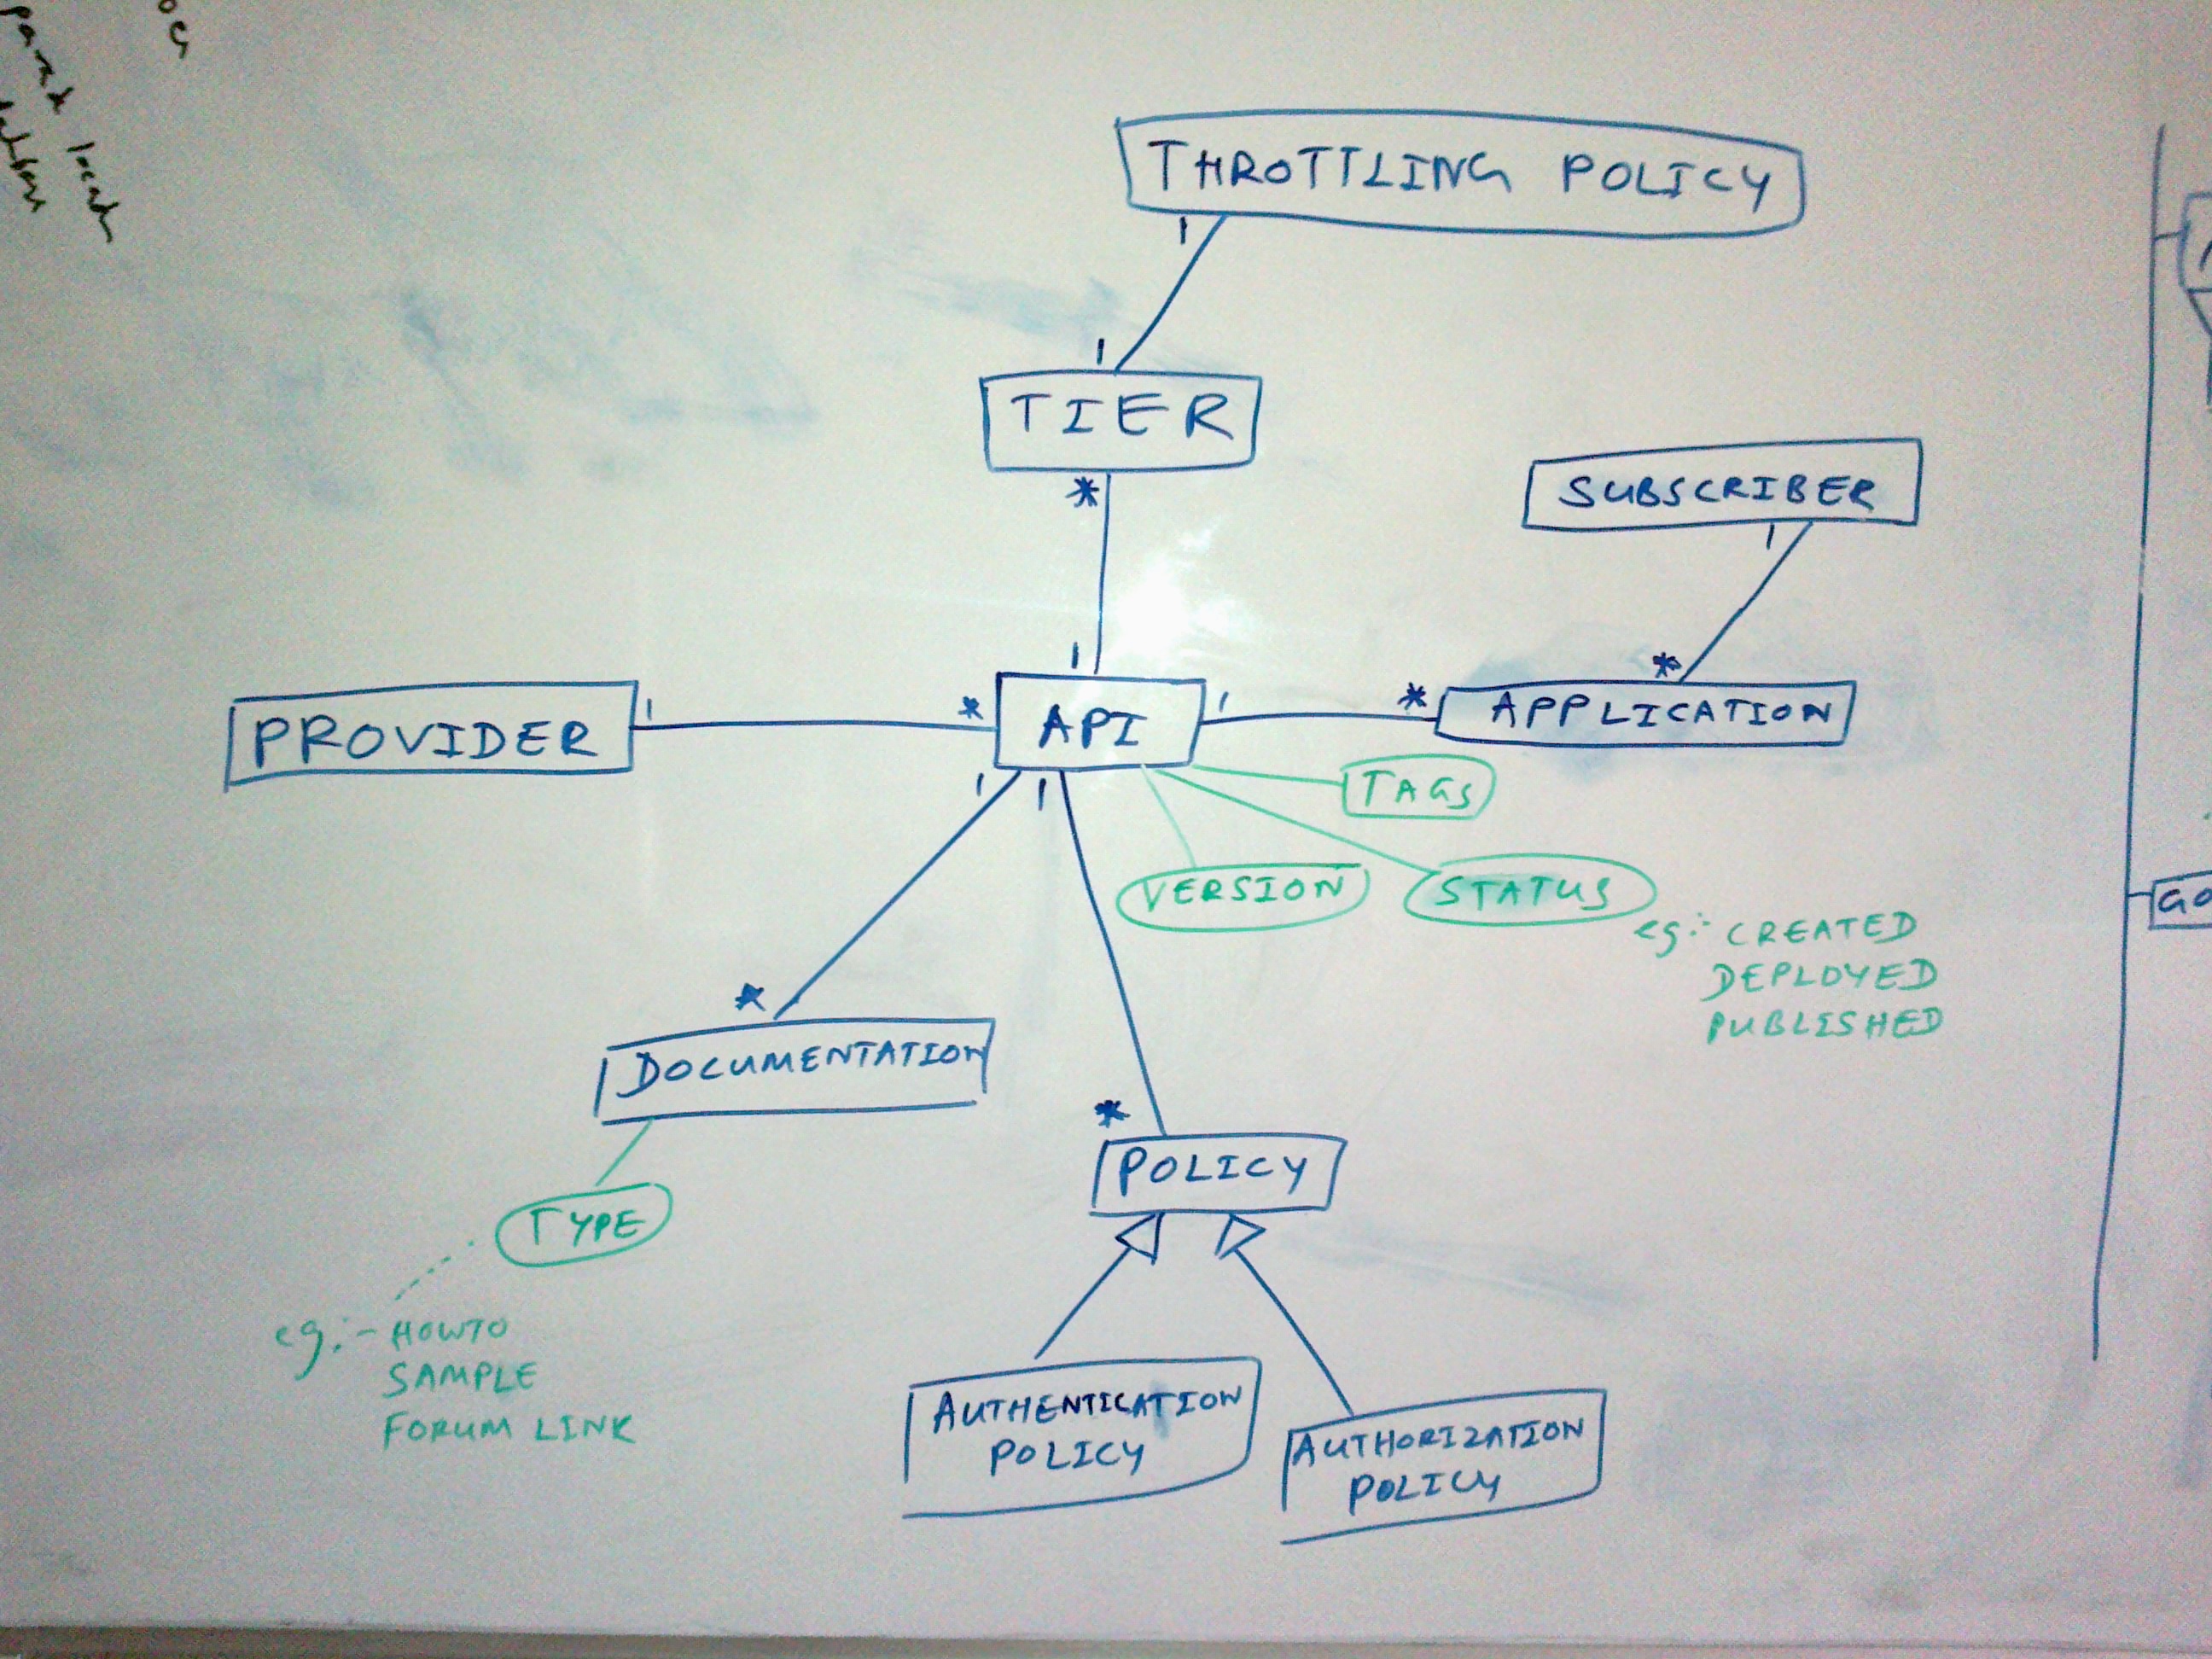 THROTTLING POLICY
1
1
TIER
*
SUBSCRIBER
1
1
*
PROVIDER
1
*
API
1
*
APPLICATION
1
1
TAGS
VERSION
STATUS
eg:- CREATED
DEPLOYED
PUBLISHED
*
DOCUMENTATION
*
POLICY
TYPE
eg:- HOWTO
SAMPLE
FORUM LINK
AUTHENTICATION
POLICY
AUTHORIZATION
POLICY